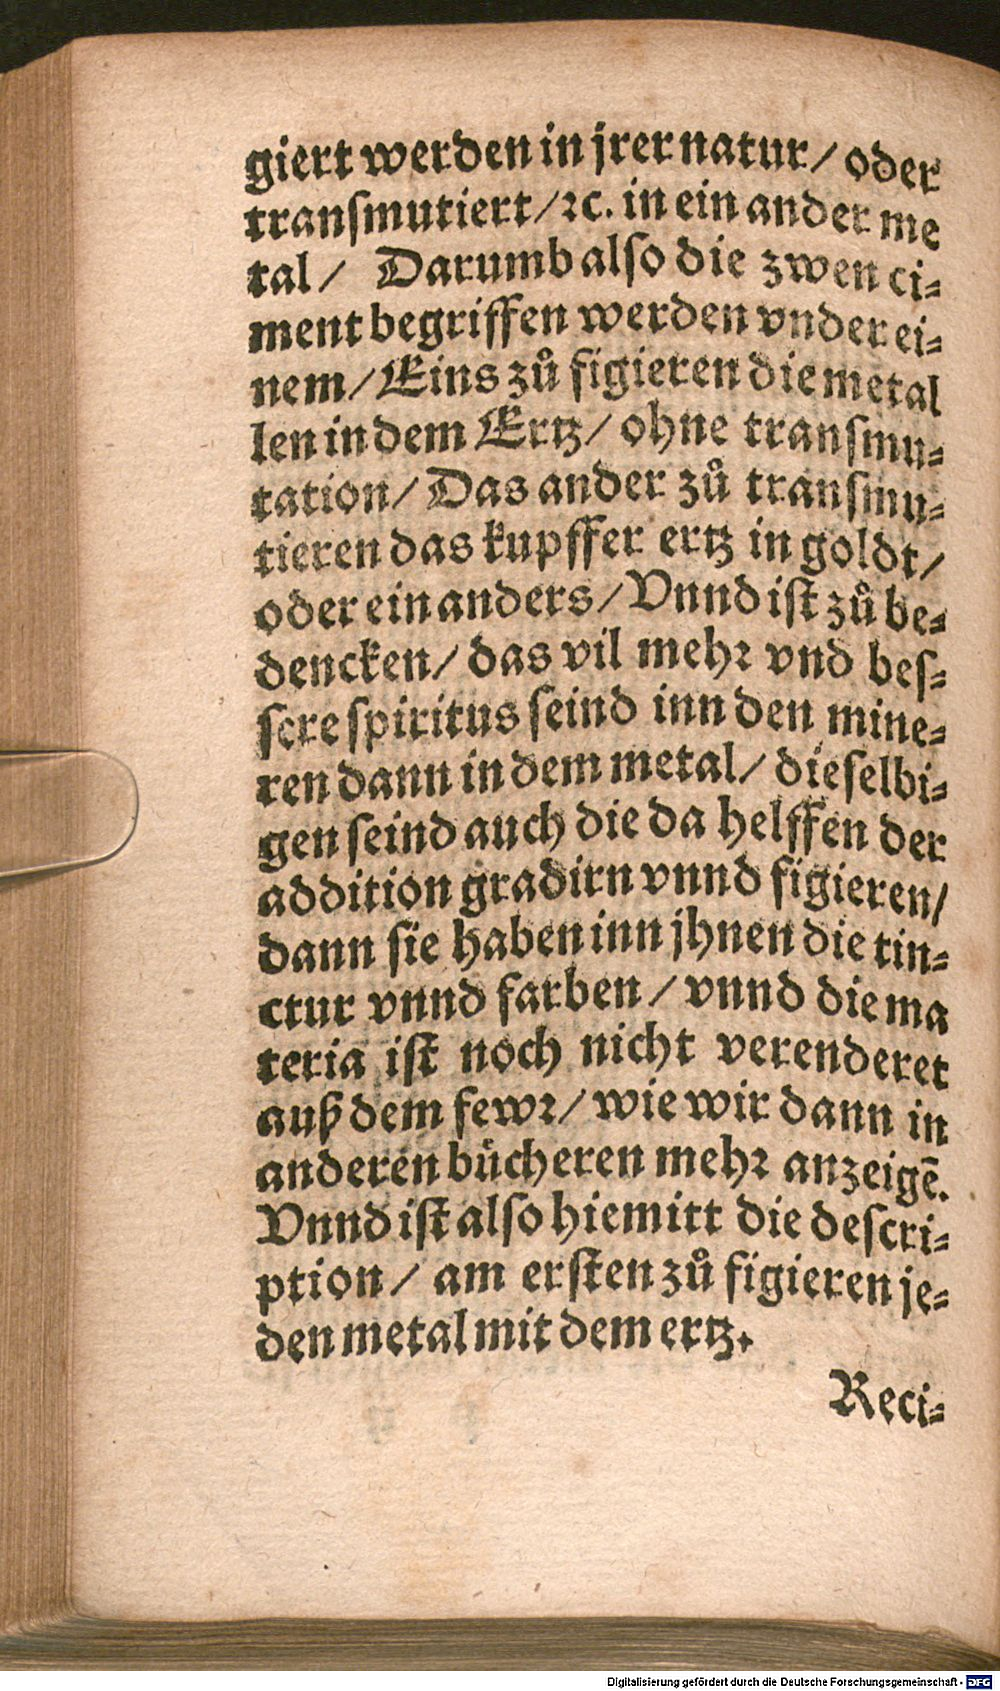 giert werden in jrer natur/ oder
transmutiert/ ꝛc. in ein ander me
tal/ Darumb also die zwen ci⸗
ment begriffen werden vnder ei⸗
nem/ Eins zů figieren die metal
len in dem Ertz/ ohne transmu⸗
tation/ Das ander zů transmu⸗
tieren das kupffer ertz in goldt/
oder ein anders/ Vnnd ist zů be⸗
dencken/ das vil mehꝛ vnd bes⸗
sere spiritus seind inn den mine⸗
ren dann in dem metal/ dieselbi⸗
gen seind auch die da helffen der
addition gradirn vnnd figieren/
dann sie haben inn jhnen die tin⸗
ctur vnnd farben/ vnnd die ma
teria ist noch nicht verenderet
auß dem fewꝛ/ wie wir dann in
anderen bücheren mehꝛ anzeigē.
Vnnd ist also hiemitt die descri⸗
ption/ am ersten zů figieren je⸗
den metal mit dem ertz.
Reci⸗
Digitalisierung gefördert durch die Deutsche Forschungsgemeinschaft - DFG